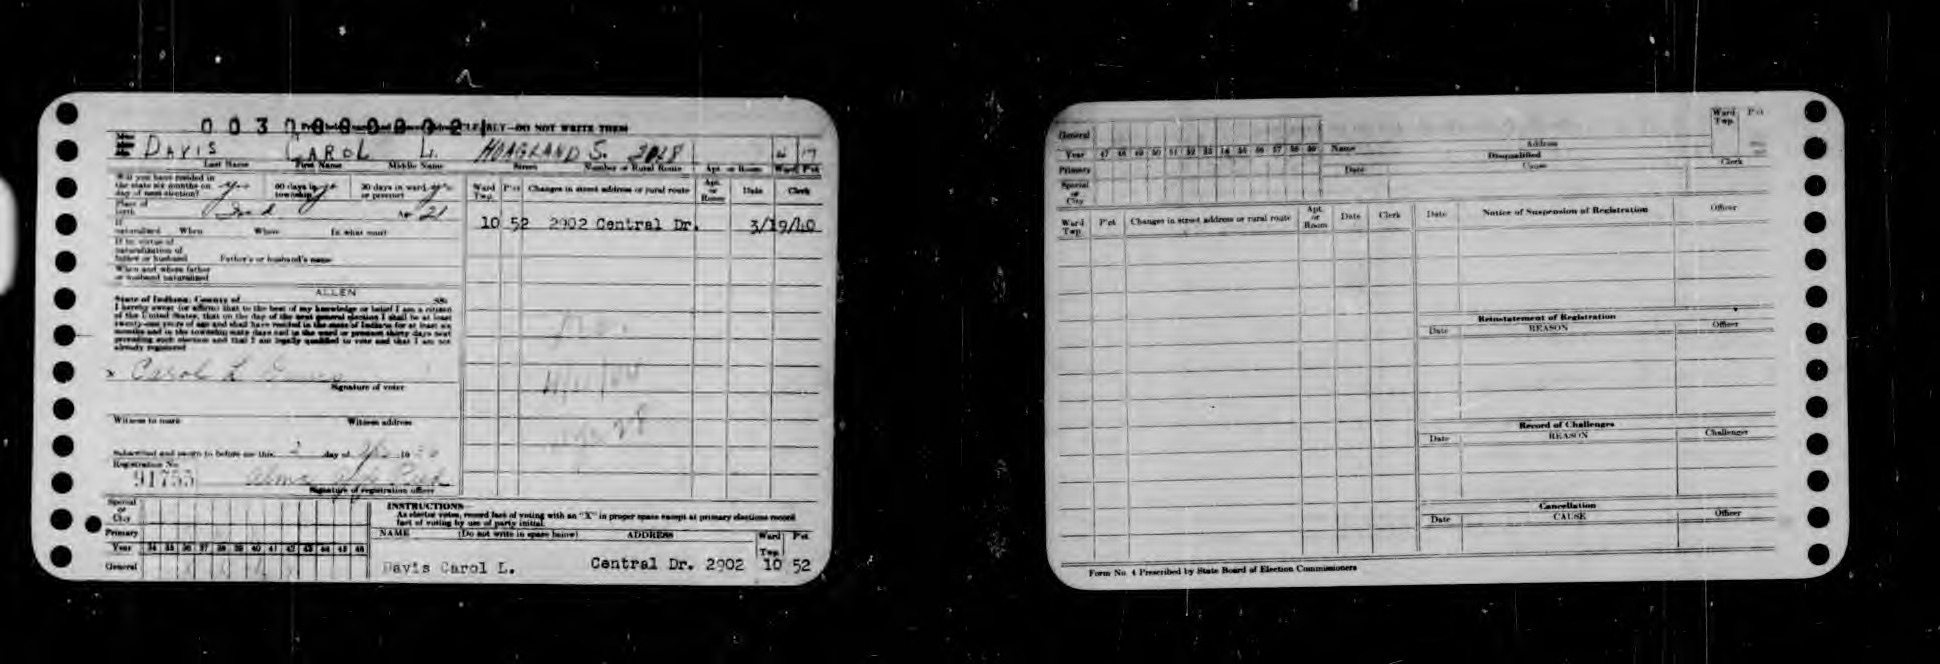 CLEARLY—DO NOT WRITE THEM
Miss
DAVIS CAROL L. HOAGLAND S. 3028 6 17
Last Name First Name Middle Name Street Number or Rural Route Apt. or Room Ward Pct
Will you have resided in the state six months on day of next election? yes 60 days in township yes 30 days in ward or precinct yes
Place of birth Ind Age 21
If naturalized When Where In what court
If by virtue of naturalization of father or husband Father's or husband's name
When and where father or husband naturalized
State of Indiana: County of ALLEN SS:
I hereby swear (or affirm) that to the best of my knowledge or belief I am a citizen
of the United States, that on the day of the next general election I shall be at least
twenty-one years of age and shall have resided in the state of Indiana for at least six
months and in the township sixty days and in the ward or precinct thirty days next
preceding such election and that I am legally qualified to vote and that I am not
already registered
x Carol L Davis
Signature of voter
Witness to mark Witness address
Subscribed and sworn to before me this 2 day of 19
Registration No
91755 Alma
Signature of registration officer
Ward Twp. Pct Changes in street address or rural route Apt. or Room Date Clerk
10 52 2902 Central Dr. 3/19/40
Special or City
Primary
Year 34 35 36 37 38 39 40 41 42 43 44 45 46
General
INSTRUCTIONS
As elector votes, record fact of voting with an "X" in proper space except at primary elections record
fact of voting by use of party initial.
NAME (Do not write in space below) ADDRESS Ward Twp. Pct
Davis Carol L. Central Dr. 2902 10 52
General
Year 47 48 49 50 51 52 53 54 55 56 57 58 59 Name Address
Primary
Special or City
Disqualified
Date Cause Clerk
Ward Twp. Pct
Ward Twp. Pct Changes in street address or rural route Apt. or Room Date Clerk
Date Notice of Suspension of Registration Officer
Reinstatement of Registration
Date REASON Officer
Record of Challenges
Date REASON Challenger
Cancellation
Date CAUSE Officer
Form No. 4 Prescribed by State Board of Election Commissioners